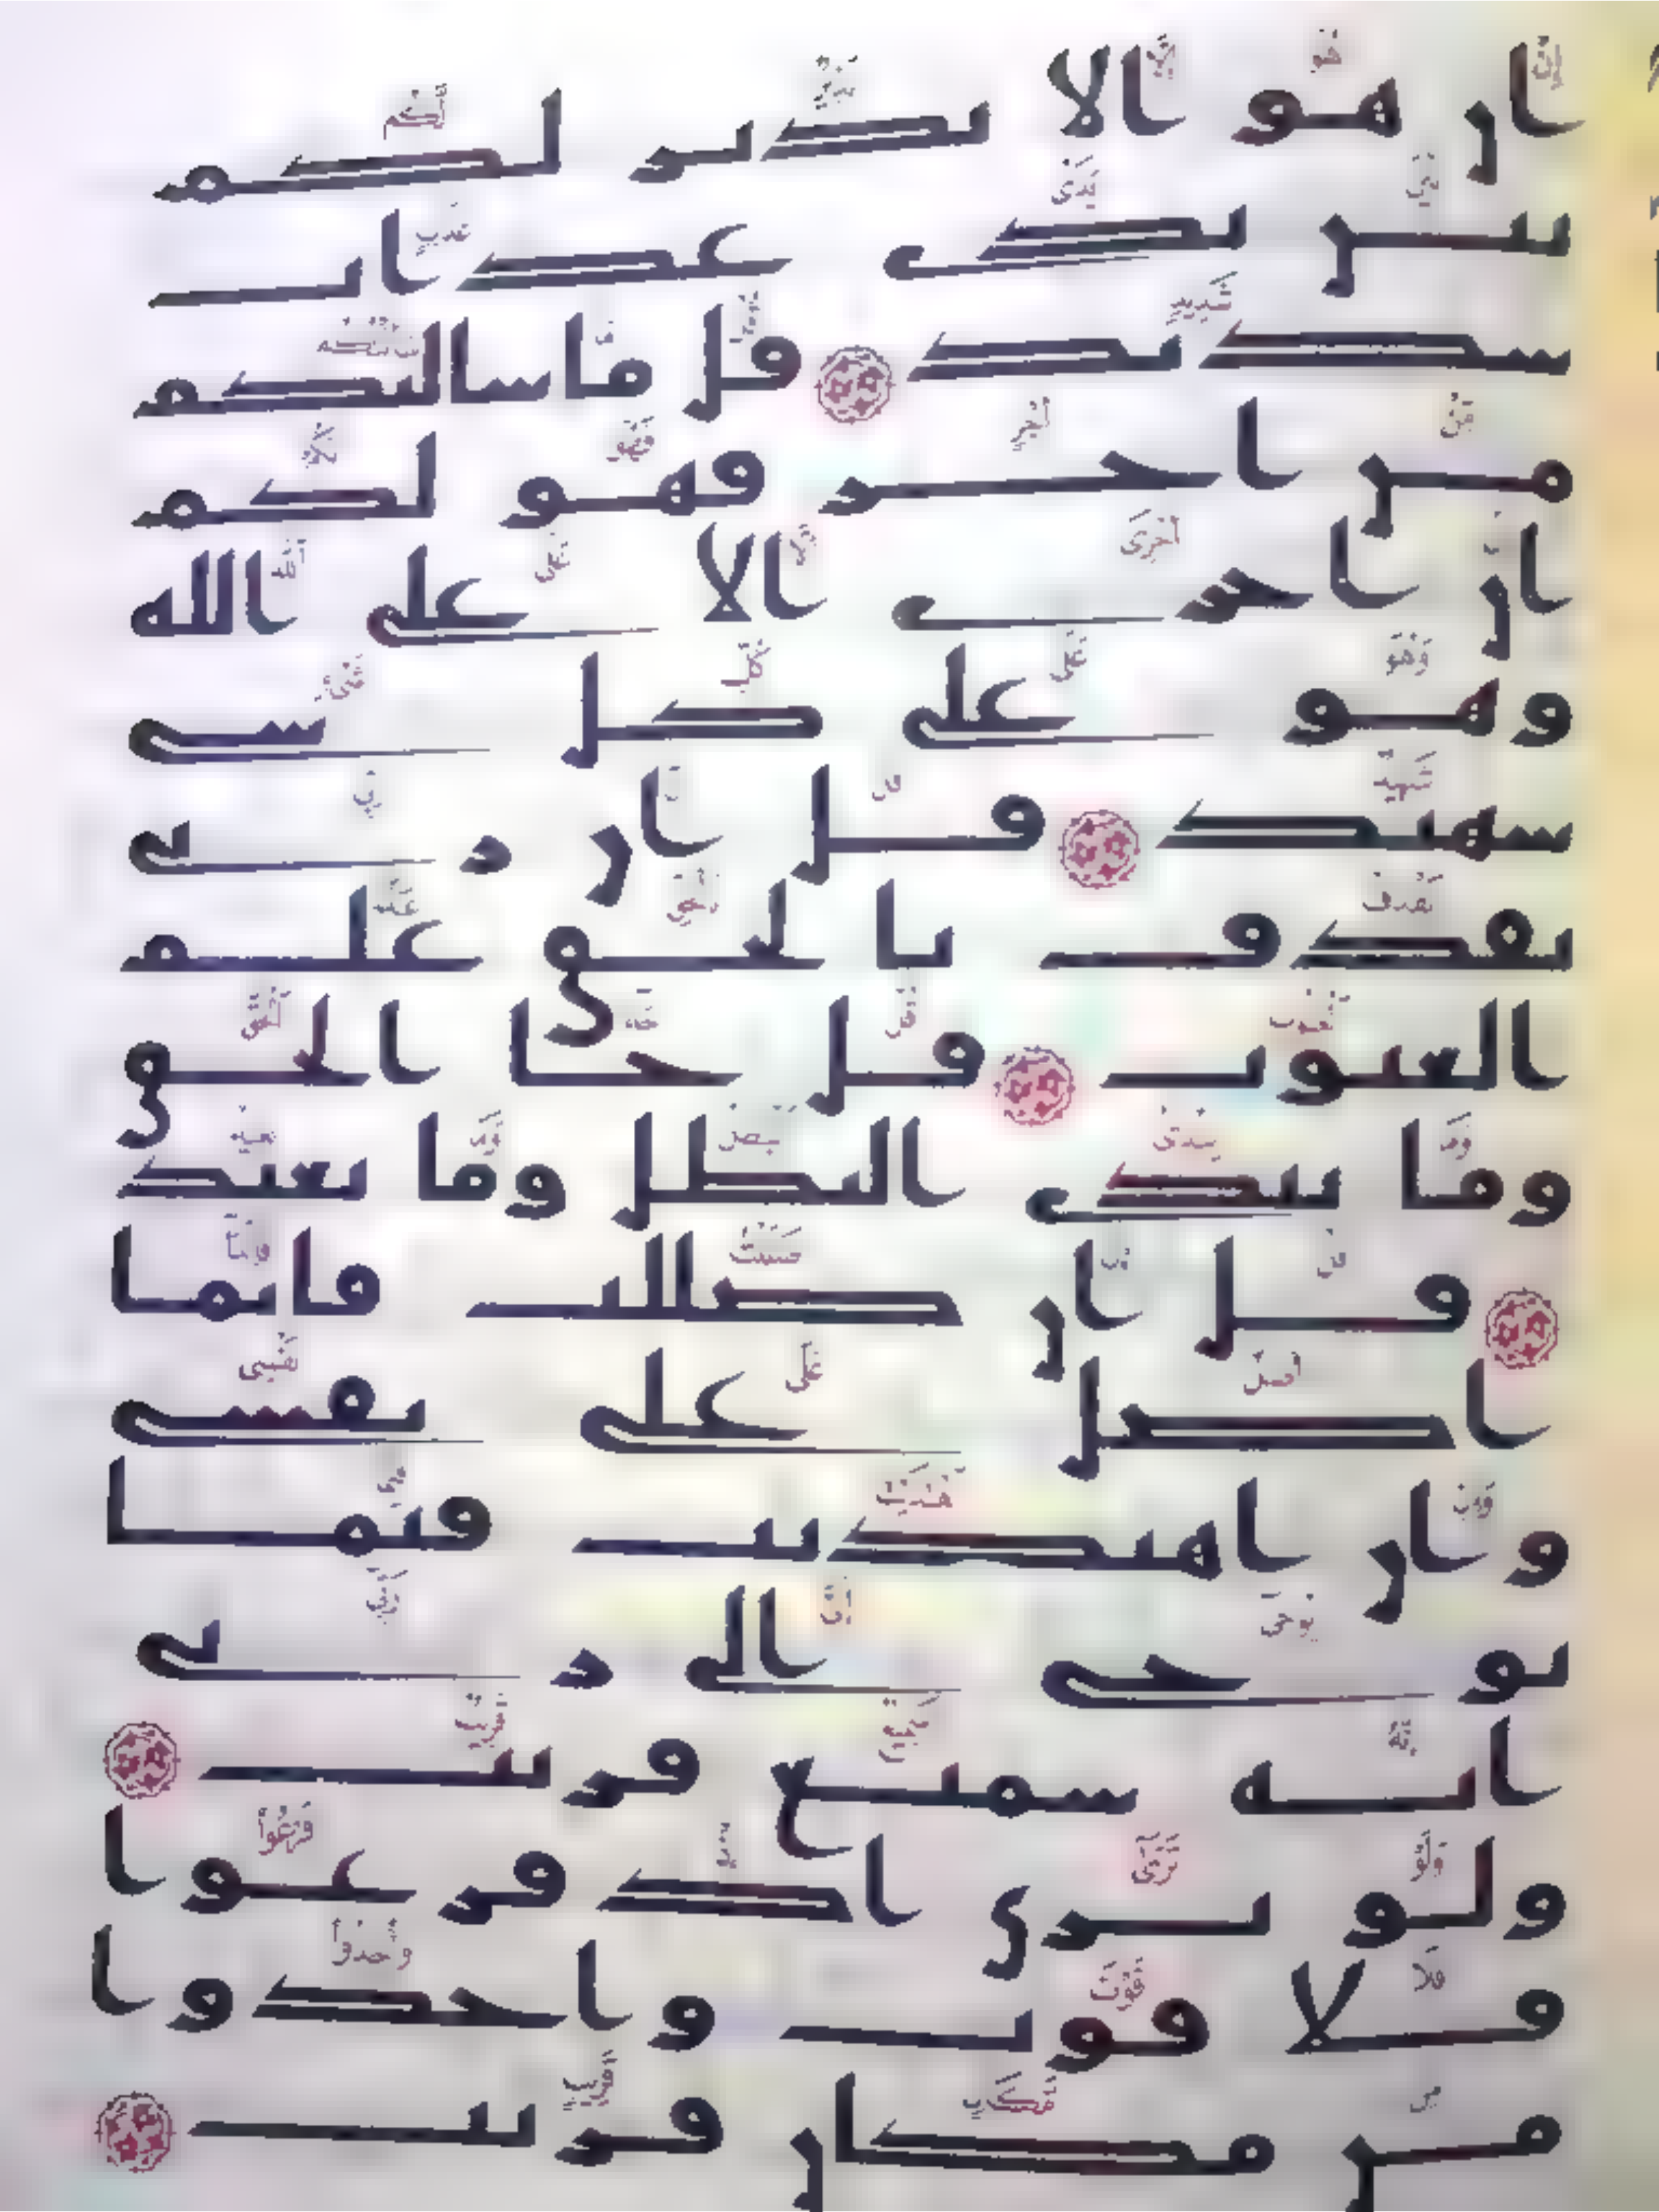 ان هو الا نذير لكم
بين يدى عذاب
شديد قل ما سالتكم
من اجر فهو لكم
ان اجرى الا على الله
وهو على كل شى
شهيد قل ان ربى
يقذف بالحق علم
الغيوب قل جا الحق
وما يبدى البطل وما يعيد
قل ان ضللت فانما
اضل على نفسى
وان اهتديت فبما
يوحى الى ربى
انه سميع قريب
ولو ترى اذ فزعوا
فلا فوت واخذوا
من مكان قريب